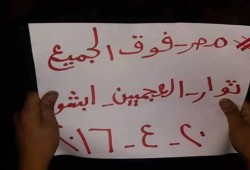 * مصر - فوق الجميع
ثوار - العجميين - ابشو
٢٠ - ٤ - ٢٠١٦